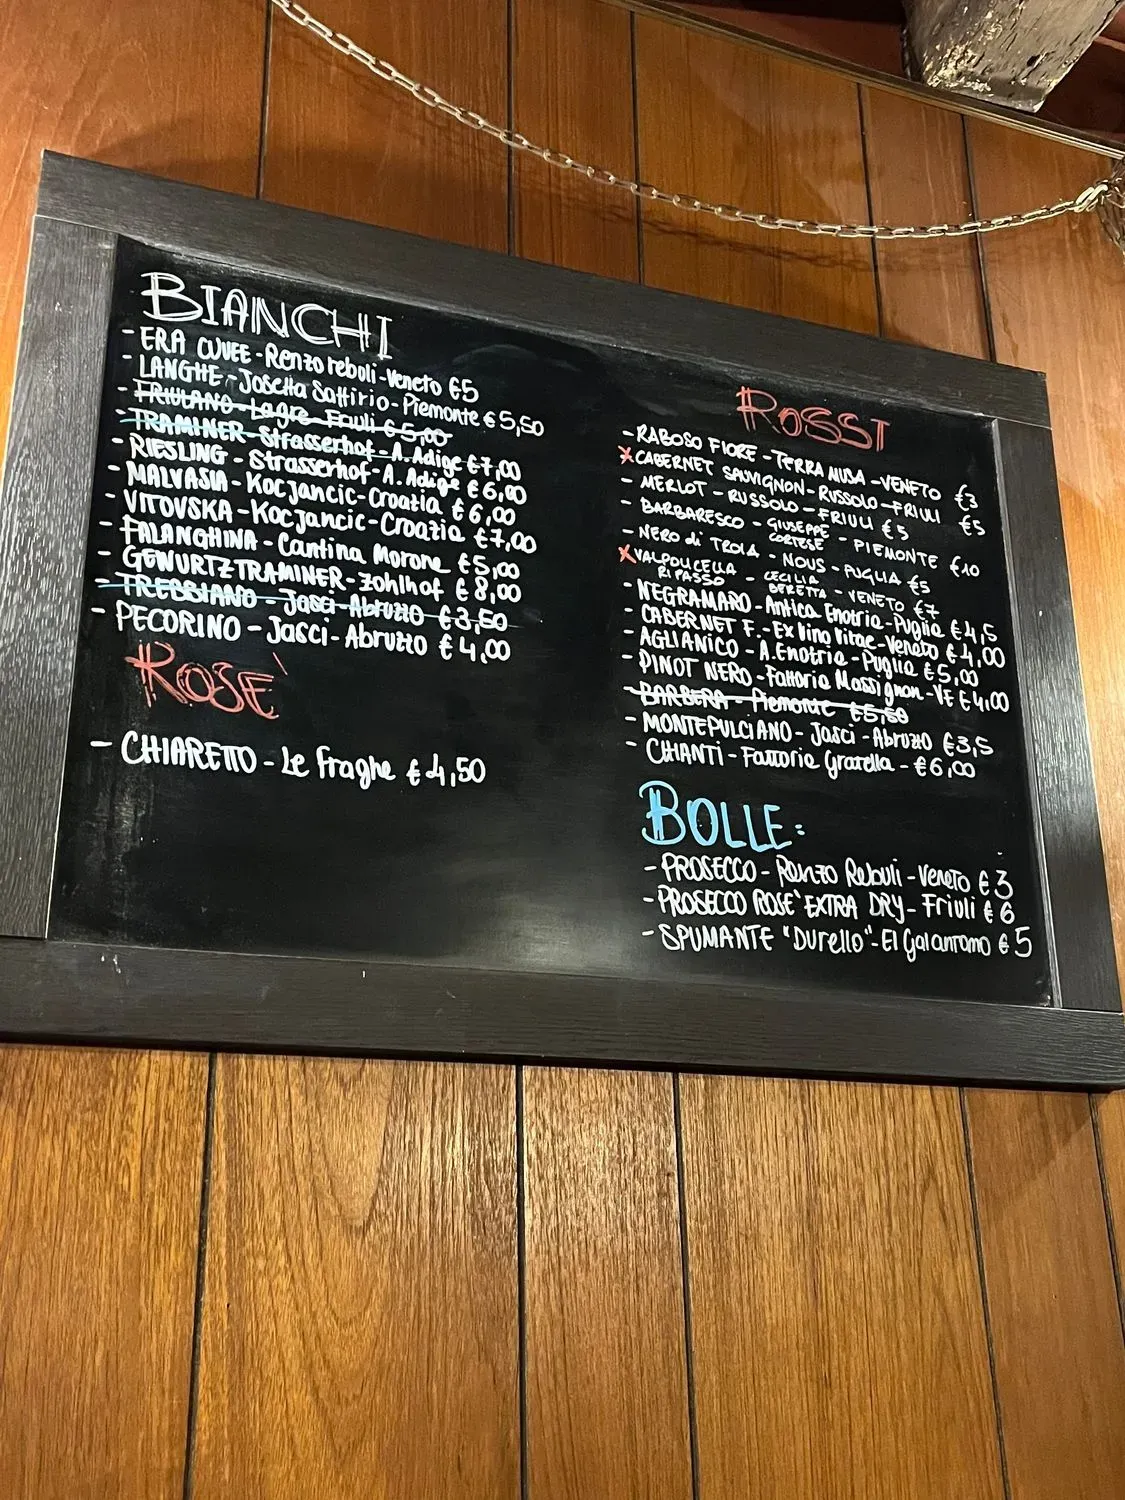 BIANCHI
- ERA CUVEE - Renzo reboli - veneto €5
- LANGHE - Josetta Saffirio - Piemonte € 5,50
- FRIULANO - Lagre - Friuli € 5,00
- TRAMINER - Strasserhof - A. Adige €7,00
- RIESLING - Strasserhof - A. Adige € 6,00
- MALVASIA - Kocjancic - Croatia € 6,00
- VITOVSKA - Kocjancic - Croazia €7,00
- FALANGHINA - Cantina Morone €5,00
- GEWURTZTRAMINER - Zohlhof € 8,00
- TREBBIANO - Jasci - Abruzzo €3,50
- PECORINO - Jasci - Abruzzo € 4,00
ROSE'
- CHIARETTO - Le Fraghe € 4,50
ROSSI
- RABOSO FIORE - TERRA MUSA - VENETO €3
x CABERNET SAUVIGNON - RUSSOLO - FRIULI €5
- MERLOT - RUSSOLO - FRIULI €5
- BARBARESCO - GIUSEPPE CORTESE - PIEMONTE €10
- NERO di TROIA - NOUS - PUGLIA €5
x VALPOLICELLA RIPASSO - CECILIA BERETTA - VENETO €7
- NEGRAMARO - Antica Enotria - Puglia €4,5
- CABERNET F. - Ex Vino Vitae - Veneto €4,00
- AGLIANICO - A. Enotria - Puglia €5,00
- PINOT NERO - Fattoria Massignan - VE €4,00
- BARBERA - Piemonte €5,50
- MONTEPULCIANO - Jasci - Abruzzo €3,5
- CHIANTI - Fattoria Gratella - €6,00
BOLLE:
- PROSECCO - Renzo Rebuli - Veneto €3
- PROSECCO ROSE' EXTRA DRY - Friuli € 6
- SPUMANTE "Durello" - El Galantomo € 5